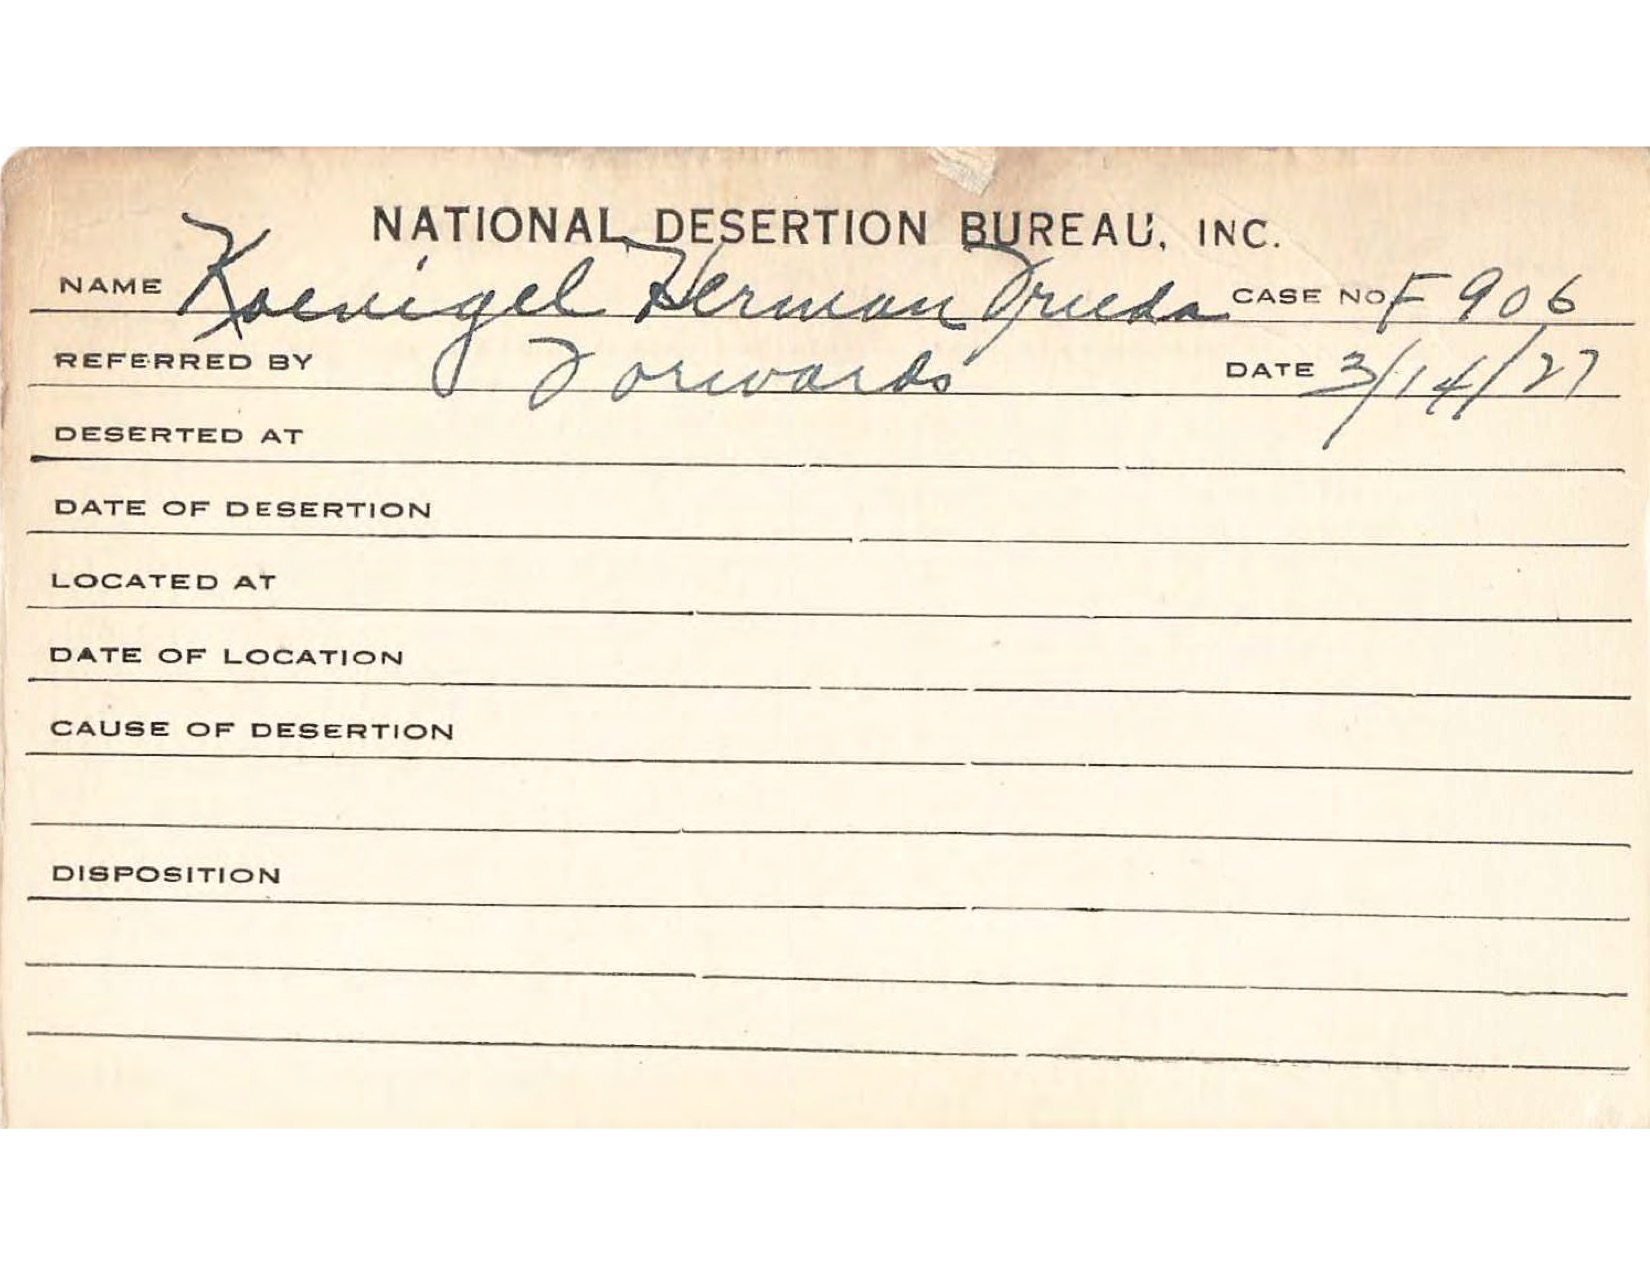 NATIONAL DESERTION BUREAU, INC.
NAME Koenigel Herman Frieda CASE NO F 906
REFERRED BY Forwards DATE 3/14/27
DESERTED AT
DATE OF DESERTION
LOCATED AT
DATE OF LOCATION
CAUSE OF DESERTION
DISPOSITION